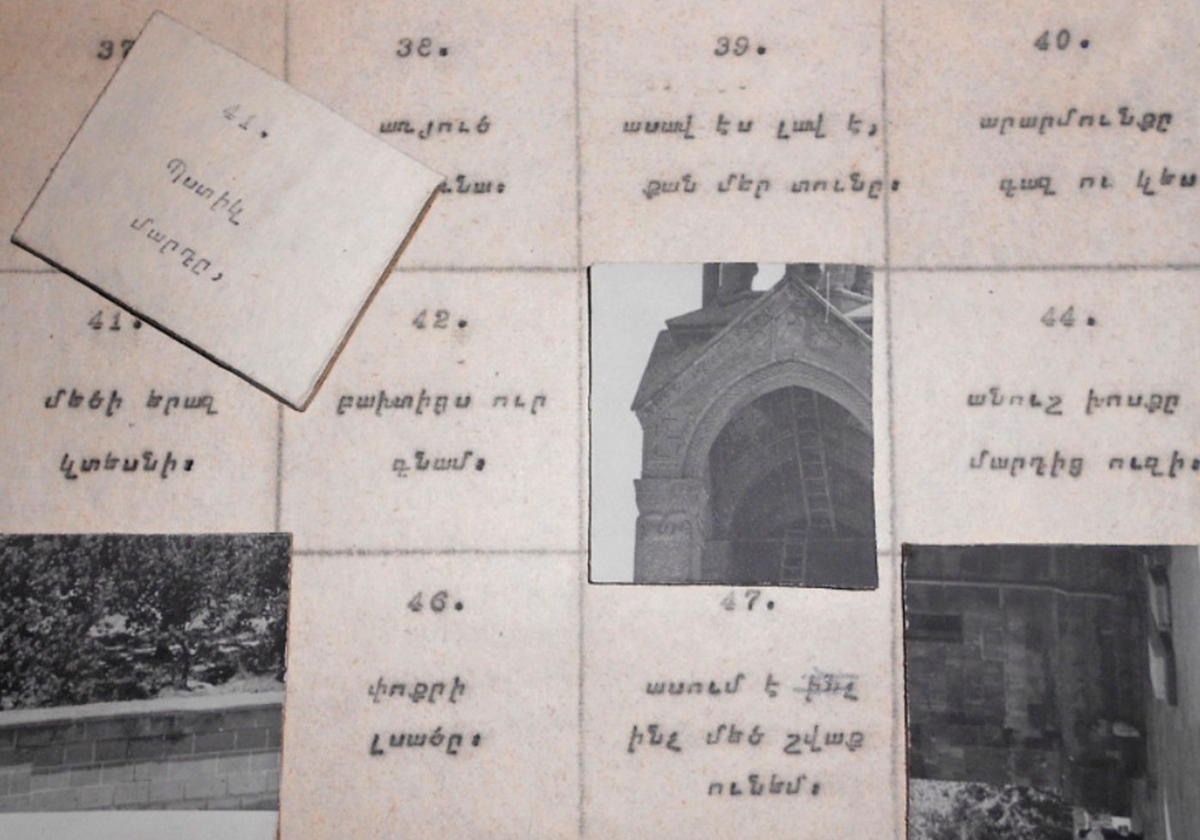 37
38.
39.
40.
41.
Պստիկ
մարդը,
առյուծ
ւնա:
ասավ էս լավ է,
քան մեր տունը:
արարմունքը
գազ ու կես
41.
42.
44.
մեծի երազ
կտեսնի:
բախտիցս ուր
գնամ:
անուշ խոսքը
մարդից ուզի:
46.
47.
փոքրի
լսածը:
ասում է
ինչ մեծ շվաք
ունեմ: